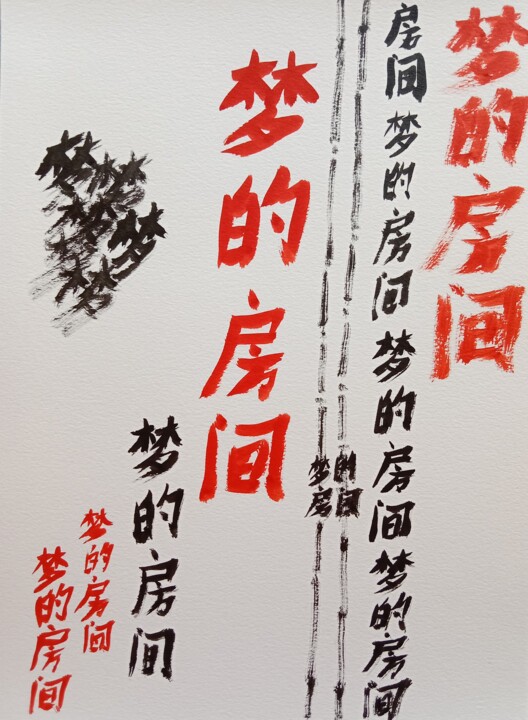 梦的房间
房间梦的房间梦的房间梦的房间
梦的
房间
梦的房间
梦的房间
梦的房间
梦的房间
梦
梦
梦